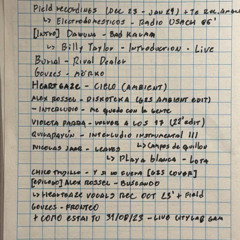 Field recordings (Dec 23 - Jan 24) + To
↳ Electrodomésticos - Radio USACH 85'
[Intro] Darkum - Bad Karam
↳ Billy Taylor - Introduction - Live
Burial - Rival Dealer
Govres - Morxo
Heartgaze - Ciclo (Ambient)
Alex Rossel - Diskoteka (025 Ambient edit)
- Interludio - Me quedo con la gente
Violeta Parra - Volver a los 17 (22' edit)
Quilapayún - Interludio instrumental III
Nicolas Jaar - Leaves ↳ Campos de quillay
↳ Playa blanca - Lota
Chico Trujillo - Y si no fuera (025 cover)
[Epilogo] Alex Rossel - Buscando
↳ Heartgaze vocals Rec Oct 23' + Field
Govres - Fronteo
+ Como estai tú 31/08/23 - Live CityLab GAM